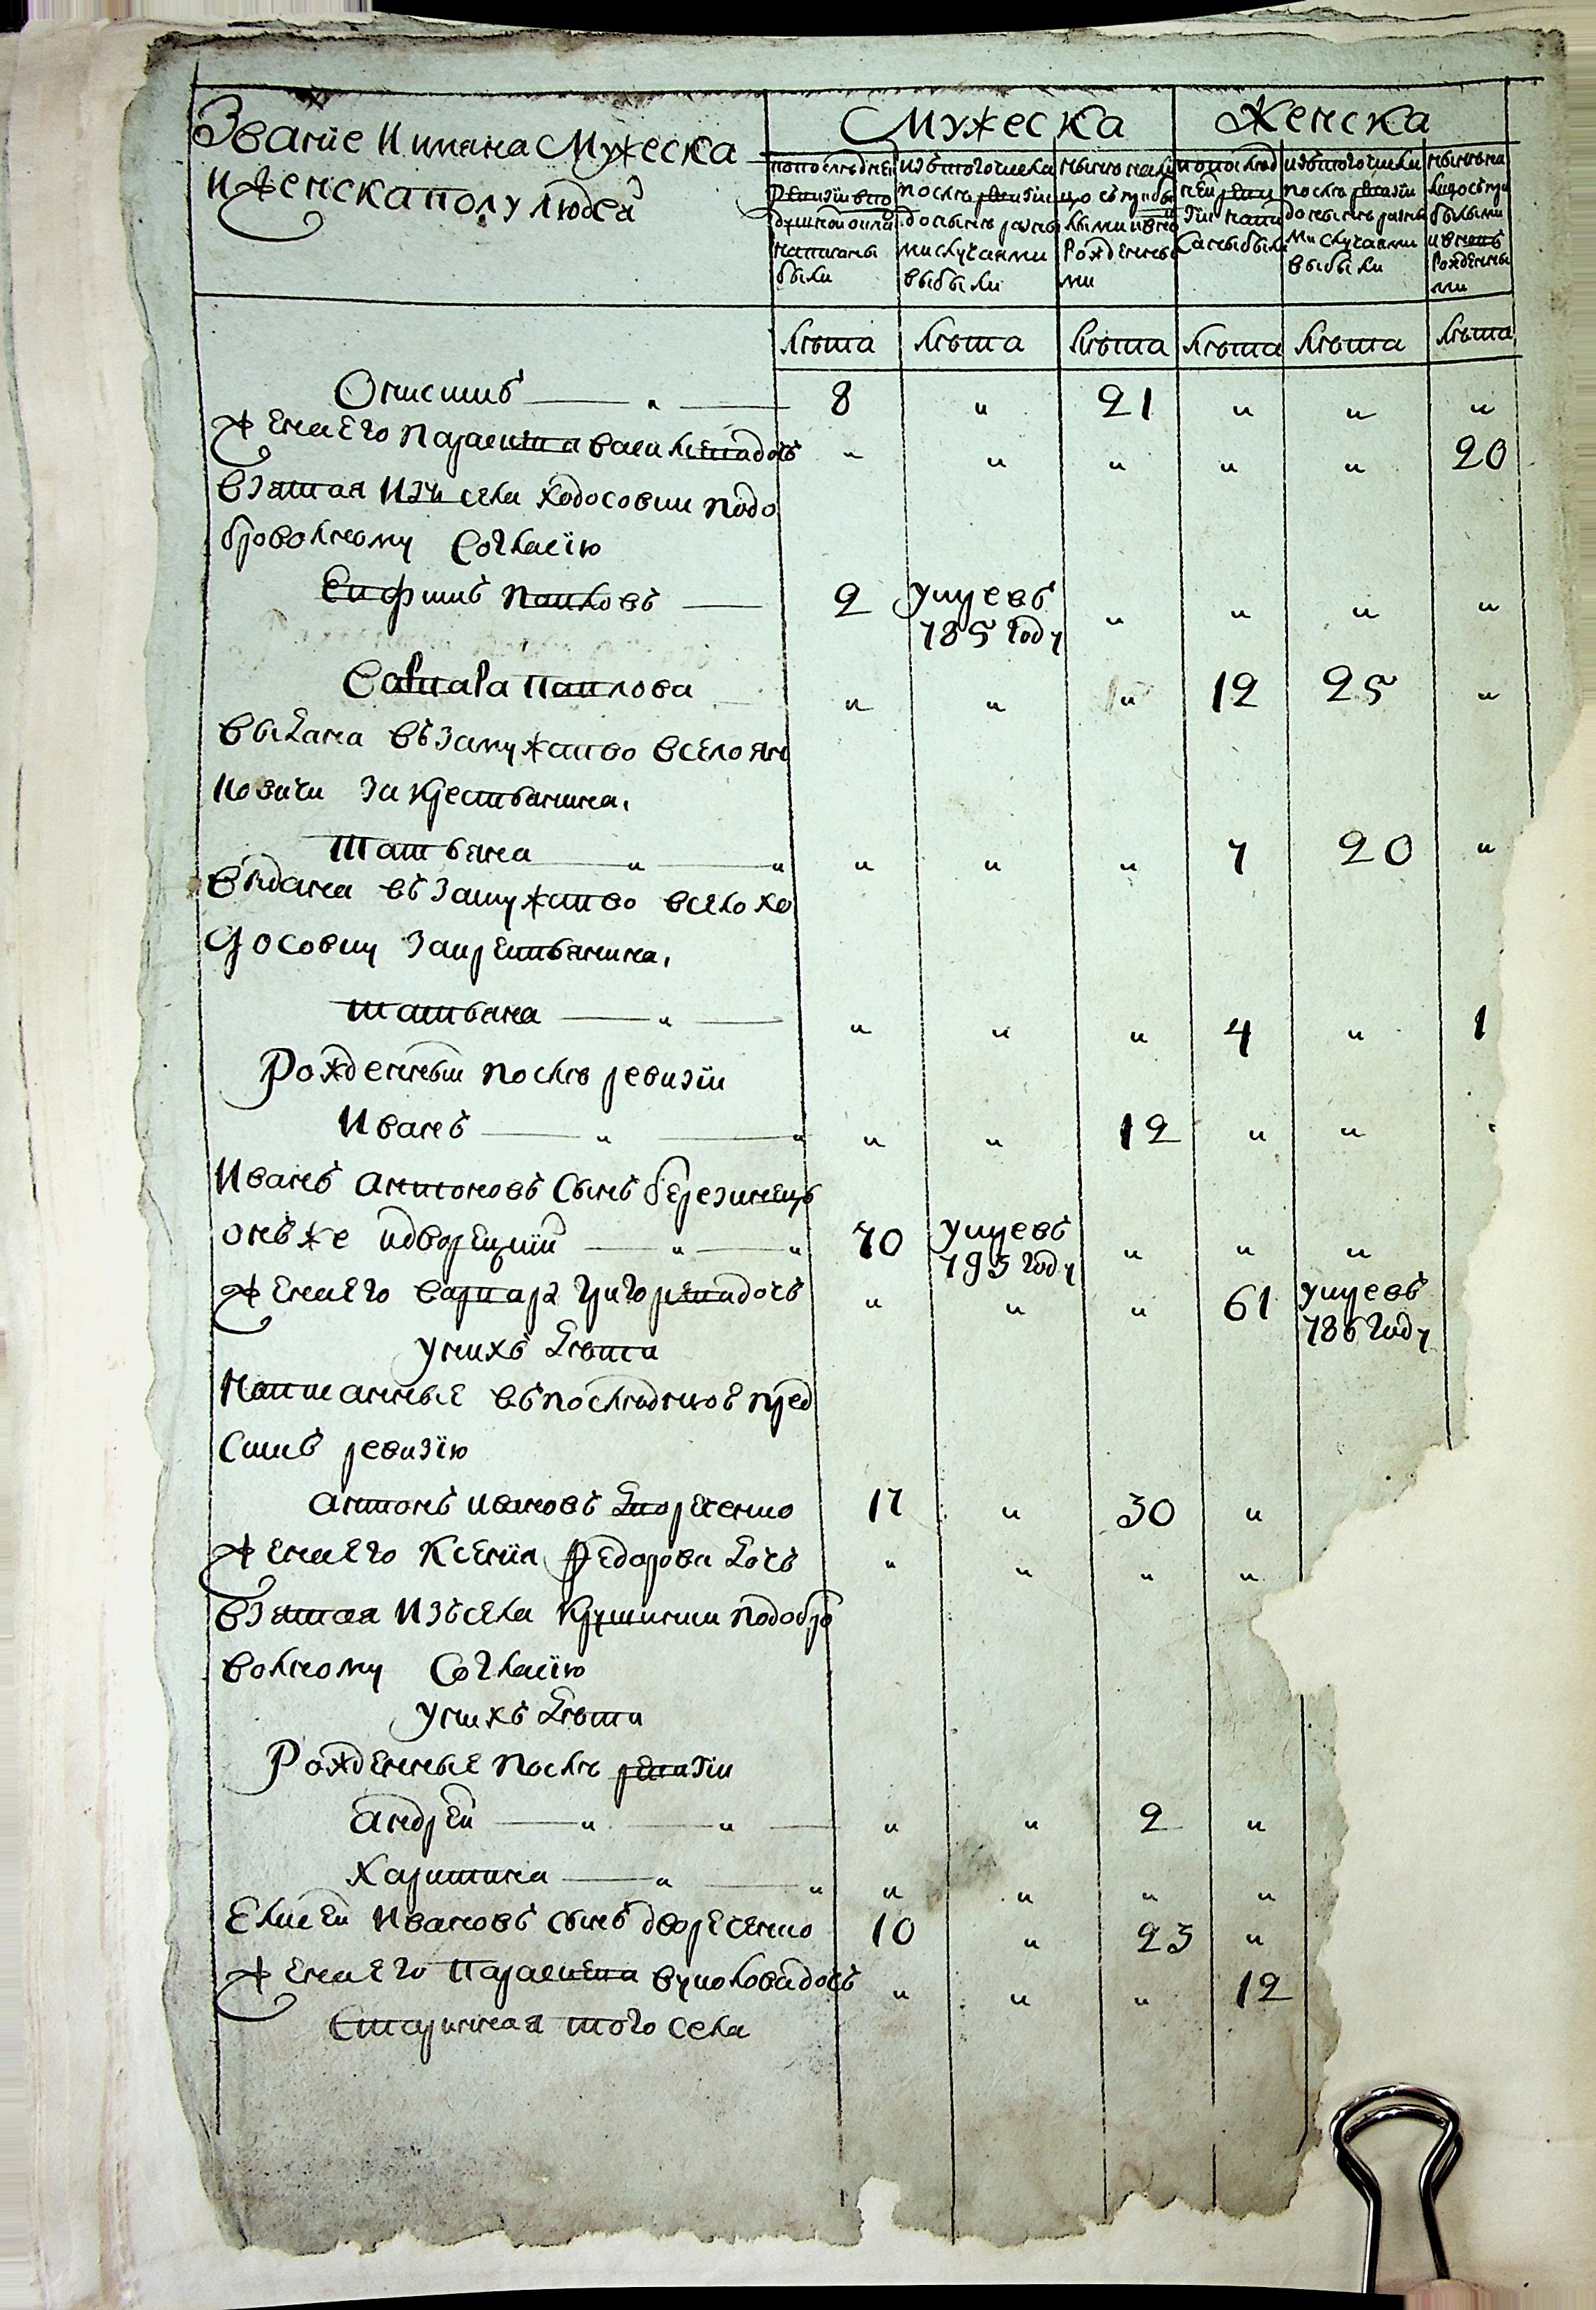 Званіе И имяна Мужеска
И женска полу людей
Мужеска
Женска
попоследней
Ревизіи въпо
душной окладъ
написаны
были
изътогочисла
послѣ ревизіи
до сылѣ разны
ми случаями
выбыли
нынѣ нали
цо съ прибы
лыми ивновь
Рожденны
ми
попослѣд
ней реви
зіи напи
саны были
изътогочисла
послѣ ревизіи
до сылѣ разны
ми случаями
выбыли
нынѣ на
лицо съ при
былыми
и вновь
Рожденны
ми
лѣта лѣта лѣта лѣта лѣта лѣта
Онисимъ — " — 8 " 21 " " "
Жена Его Параскева василиева дочь " " " " " 20
взятая Изъ села Ходосовки подо
бровольному Согласію
Ефимъ Павловъ — 2 умре въ " " " "
785 году
Варвара Павлова " " " 12 25 "
выдана въ замужство въ село Ян
ковичи за крестьянина.
Татьяна " " " " " 7 20 "
выдана въ замужство в село Хо
досовку за крестьянина.
Татьяна — " — " " " 4 " 1
Рожденный послѣ ревизіи
Иванъ — " — " " " 12 " "
Иванъ Антоновъ Сынъ березинецъ
онъ же идворецкій — " — " 70 умре въ " " "
795 году
Жена Его варвара григориева дочь " " " 61 умре въ
786 году
У нихъ дѣти
Написанные въ последнюю пред
симъ ревизію
Антонъ Ивановъ двореченко 17 " 30 "
Жена Его Ксенія Федорова дочь " " " "
взятая Изъ села Крушинки подобро
вольному Согласію
У нихъ дѣти
Рожденные послѣ ревизіи
Андрей — " — " — " " 2 "
Харитина — " — " " " " "
Елисей Ивановъ сынъ дворесенко 10 " 23 "
Жена Его Параскева вуколова дочь " " " 12
Старинная того села